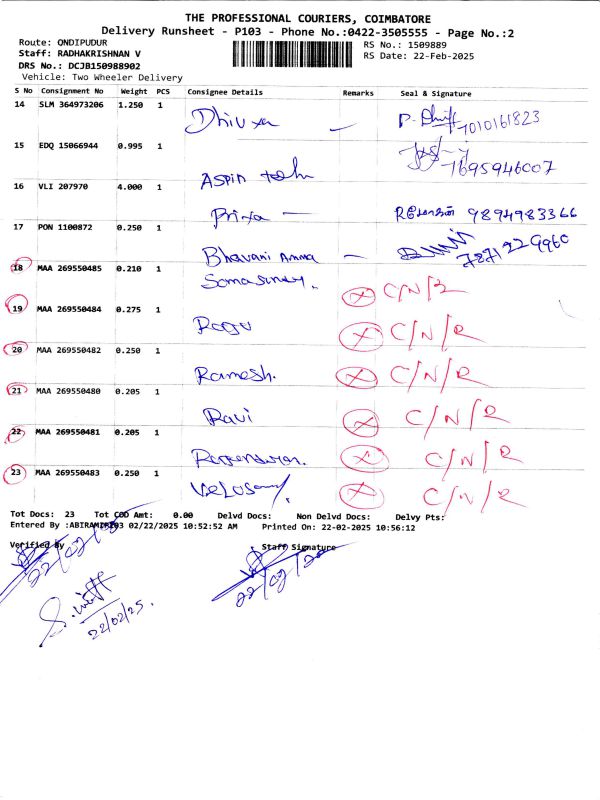 THE PROFESSIONAL COURIERS, COIMBATORE
Delivery Runsheet - P103 - Phone No.:0422-3505555 - Page No.:2
Route: ONDIPUDUR
Staff: RADHAKRISHNAN V
DRS No.: DCJB150988902
Vehicle: Two Wheeler Delivery
RS No.: 1509889
RS Date: 22-Feb-2025
S No Consignment No Weight PCS Consignee Details Remarks Seal & Signature
14 SLM 364973206 1.250 1 Dhivya 7010161823
15 EDQ 15066944 0.995 1 Aspin 7695946007
16 VLI 207970 4.000 1 Priya 9894983366
17 PON 1100872 0.250 1 Bhavani Amma 7871229960
18 MAA 269550485 0.210 1 C/N/R
19 MAA 269550484 0.275 1 Ragu C/N/R
20 MAA 269550482 0.250 1 Ramesh. C/N/R
21 MAA 269550480 0.205 1 Ravi C/N/R
22 MAA 269550481 0.205 1 C/N/R
23 MAA 269550483 0.250 1 Velusamy C/N/R
Tot Docs: 23 Tot COD Amt: 0.00 Delvd Docs: Non Delvd Docs: Delvy Pts:
Entered By :ABIRAMIP103 02/22/2025 10:52:52 AM Printed On: 22-02-2025 10:56:12
Verified By Staff Signature
22/02/25
22/02/25.